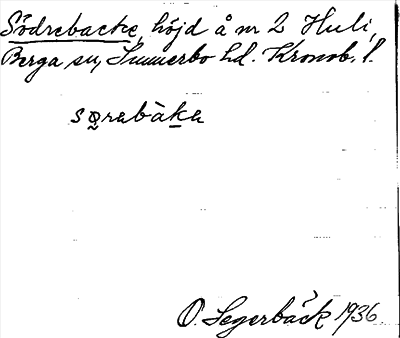 Södrebacke, höjd å nr 2 Huli,
Berga sn, Sunnerbo hd. Kronob. l.
sørabàka
O. Segerbäck 1936.